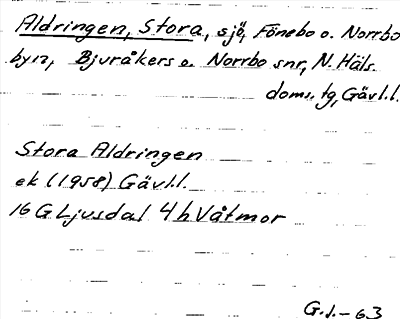 Aldringen, Stora, sjö, Fönebo o. Norrbo
byn, Bjuråkers o. Norrbo snr, N. Häls.
doms. tg, Gävl.l.
Stora Aldringen
ek (1958) Gävl.l.
16 G Ljusdal 4h Våtmor
G.l.-63